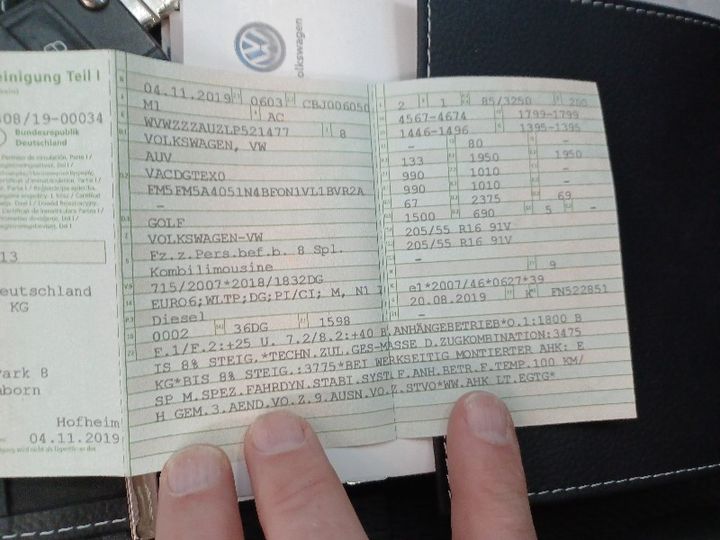 olkswagen
einigung Teil I
608/19-00034
Bundesrepublik
Deutschland
13
eutschland
KG
ark 8
born
Hofheim
04.11.2019
04.11.2019 0603 CBJ006050
M1 AC
WVWZZZAUZLP521477 8
VOLKSWAGEN, VW
AUV
VACDGTEX0
FM5FM5A4051N4BFON1VL1BVR2A
-
GOLF
VOLKSWAGEN-VW
Fz.z.Pers.bef.b. 8 Spl.
Kombilimousine
715/2007*2018/1832DG
EURO6;WLTP;DG;PI/CI; M, N1 I
Diesel
0002 36DG 1598
2 1 85/3250 200
4567-4674 1799-1799
1446-1496 1395-1395
- 80 -
133 1950 1950
990 1010 -
990 1010 -
67 2375 69
1500 690 5 -
205/55 R16 91V
205/55 R16 91V
-
- 9
e1*2007/46*0627*39
20.08.2019 K FN522851
-
F.1/F.2:+25 U. 7.2/8.2:+40 B.ANHÄNGEBETRIEB*O.1:1800 B
IS 8% STEIG.*TECHN.ZUL.GES-MASSE D.ZUGKOMBINATION:3475
KG*BIS 8% STEIG.:3775*BEI WERKSEITIG MONTIERTER AHK: E
SP M.SPEZ.FAHRDYN.STABI.SYST.F.ANH.BETR.F.TEMP.100 KM/
H GEM.3.AEND.VO.Z.9.AUSN.VO.Z.STVO*WW.AHK LT.EGTG*